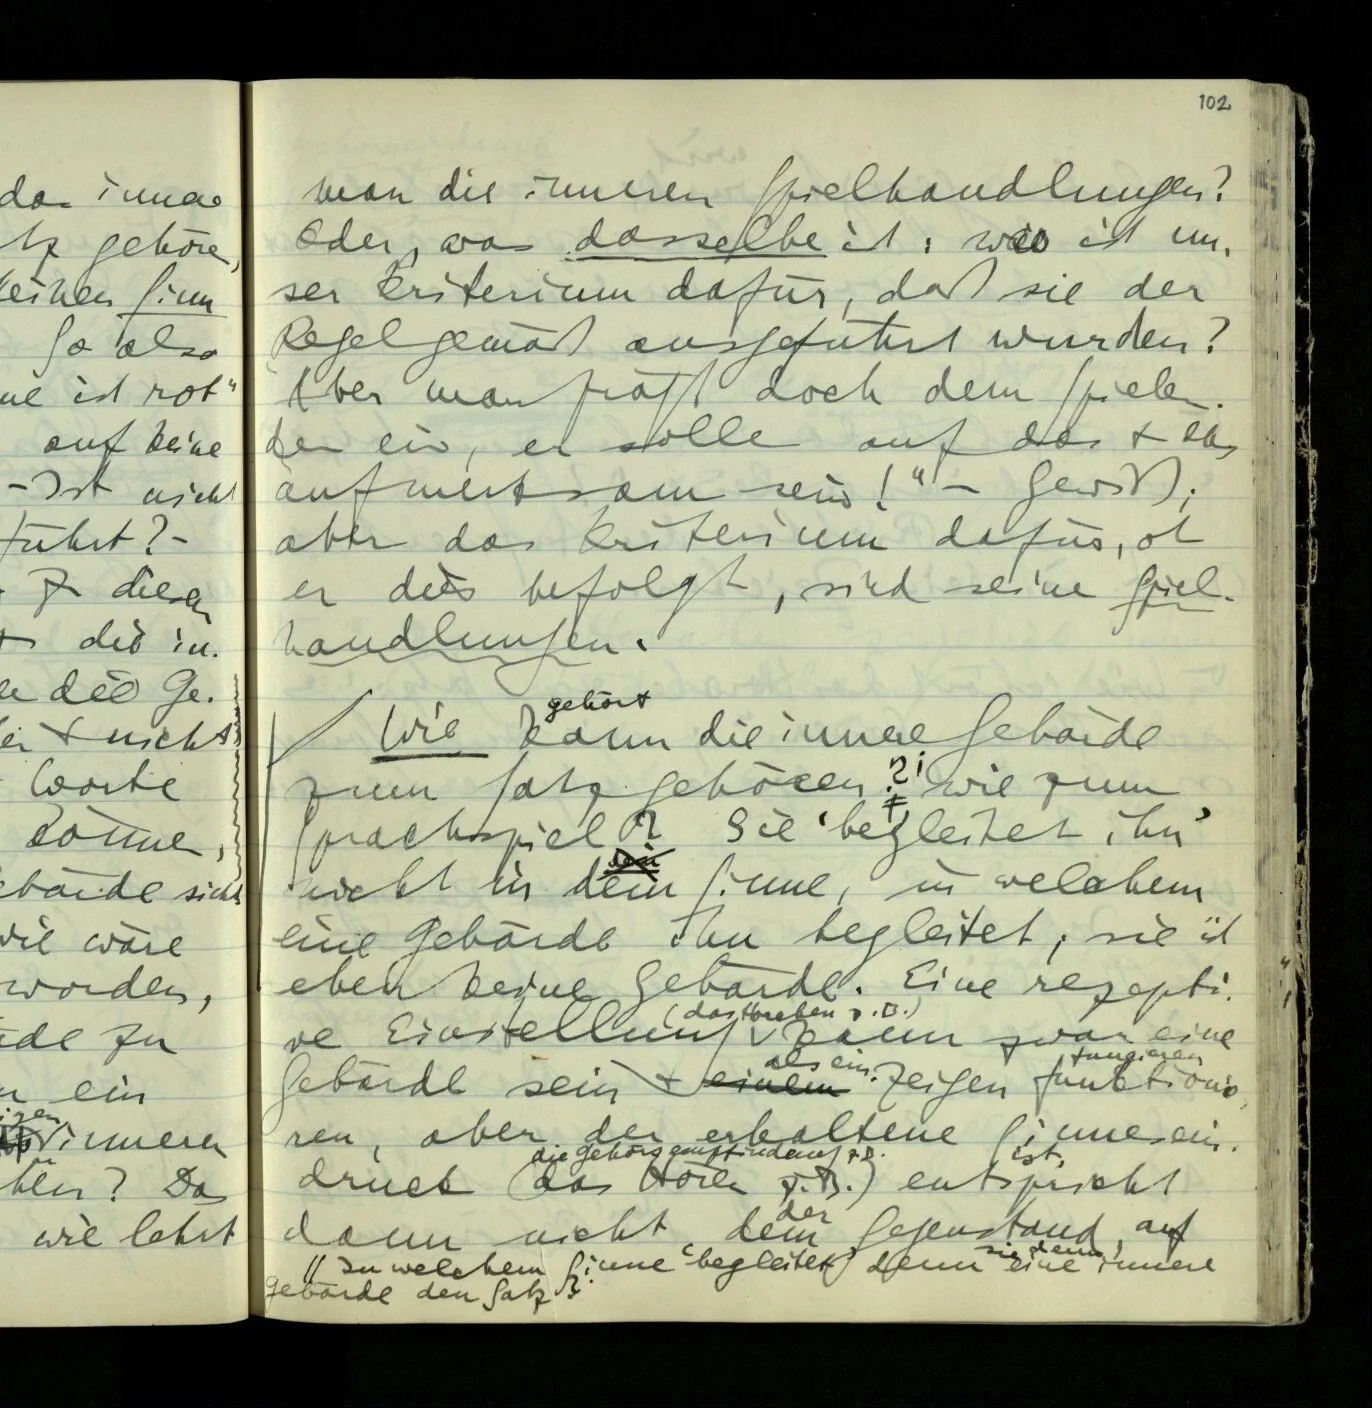 das innere
tz gehöre,
keinen Sinn
So also
me ist rot"
auf keine
– Ist nicht
führt? –
diesen
die in-
die Ge-
+ nicht
Worte
könne,
ebärde nicht
wie wäre
worden,
ärde zu
ein
inneren
? Das
wie lehrt
102
man die inneren Spielhandlungen?
Oder, was dasselbe ist: was ist un-
ser Kriterium dafür, daß sie der
Regel gemäß ausgeführt wurden?
Aber man prägt doch dem Spielen-
den ein, er solle auf das + das
aufmerksam sein!" – Gewiß;
aber das Kriterium dafür, ob
er dies befolgt, sind seine Spiel-
handlungen.
gehört
/ Wie kann die innere Gebärde
zum Satz gehören?; wie zum
Sprachspiel? Sie 'begleitet ihn'
dem
nicht in dem Sinne, in welchem
eine Gebärde ihn begleitet; sie ist
eben keine Gebärde. Eine rezepti-
(das Horchen z.B.)
ve Einstellung kann zwar eine
als ein fungieren
Gebärde sein + einem Zeigen funktionie-
ren, aber der erhaltene Sinnesein-
die Gehörsempfindung z.B. ist,
druck (das Hören z.B.) entspricht
der
dann nicht dem Gegenstand, auf
sie denn,
// In welchem Sinne 'begleitet' denn eine innere
Gebärde den Satz?